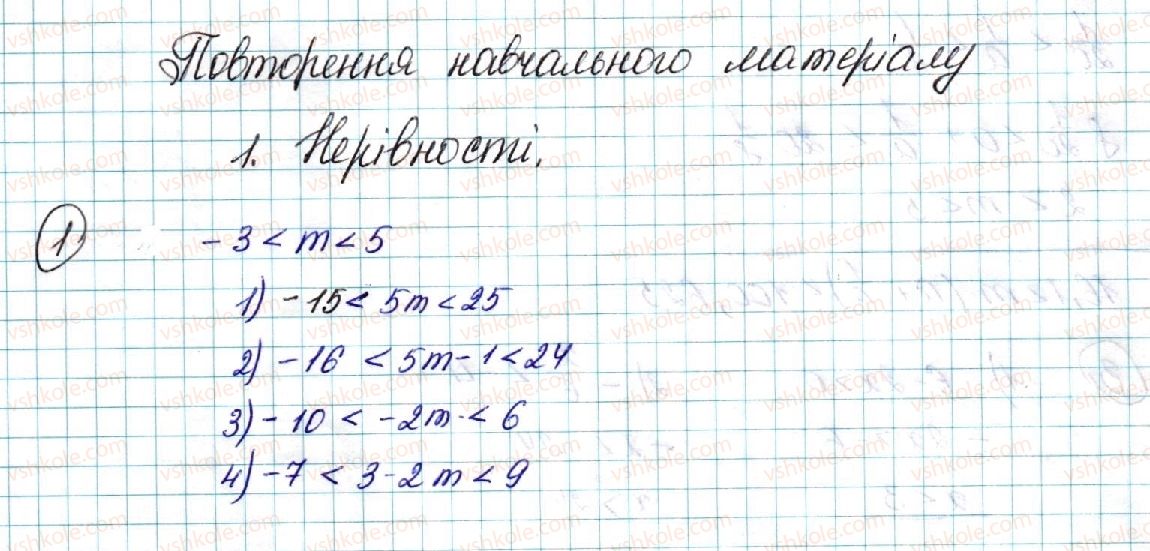 Повторення навчального матеріалу
1. Нерівності.
1. -3 < m < 5
1) -15 < 5m < 25
2) -16 < 5m - 1 < 24
3) -10 < -2m < 6
4) -7 < 3 - 2m < 9